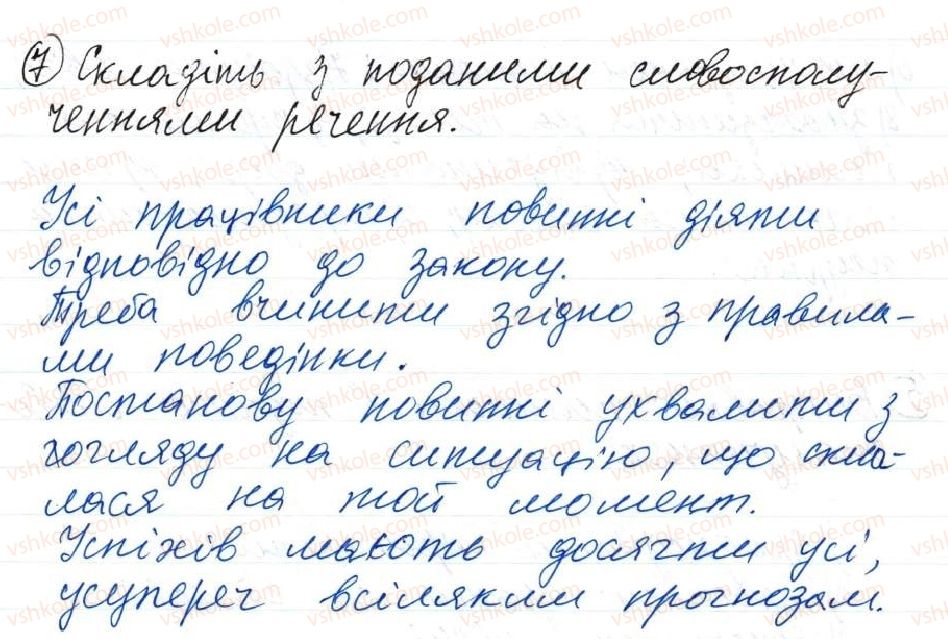 7 Складіть з поданими словосполу-
ченнями речення.
Усі працівники повинні діяти
відповідно до закону.
Треба вчинити згідно з правила-
ми поведінки.
Постанову повинні ухвалити з
погляду на ситуацію, що скла-
лася на той момент.
Успіхів мають досягти усі,
усупереч всіляким прогнозам.